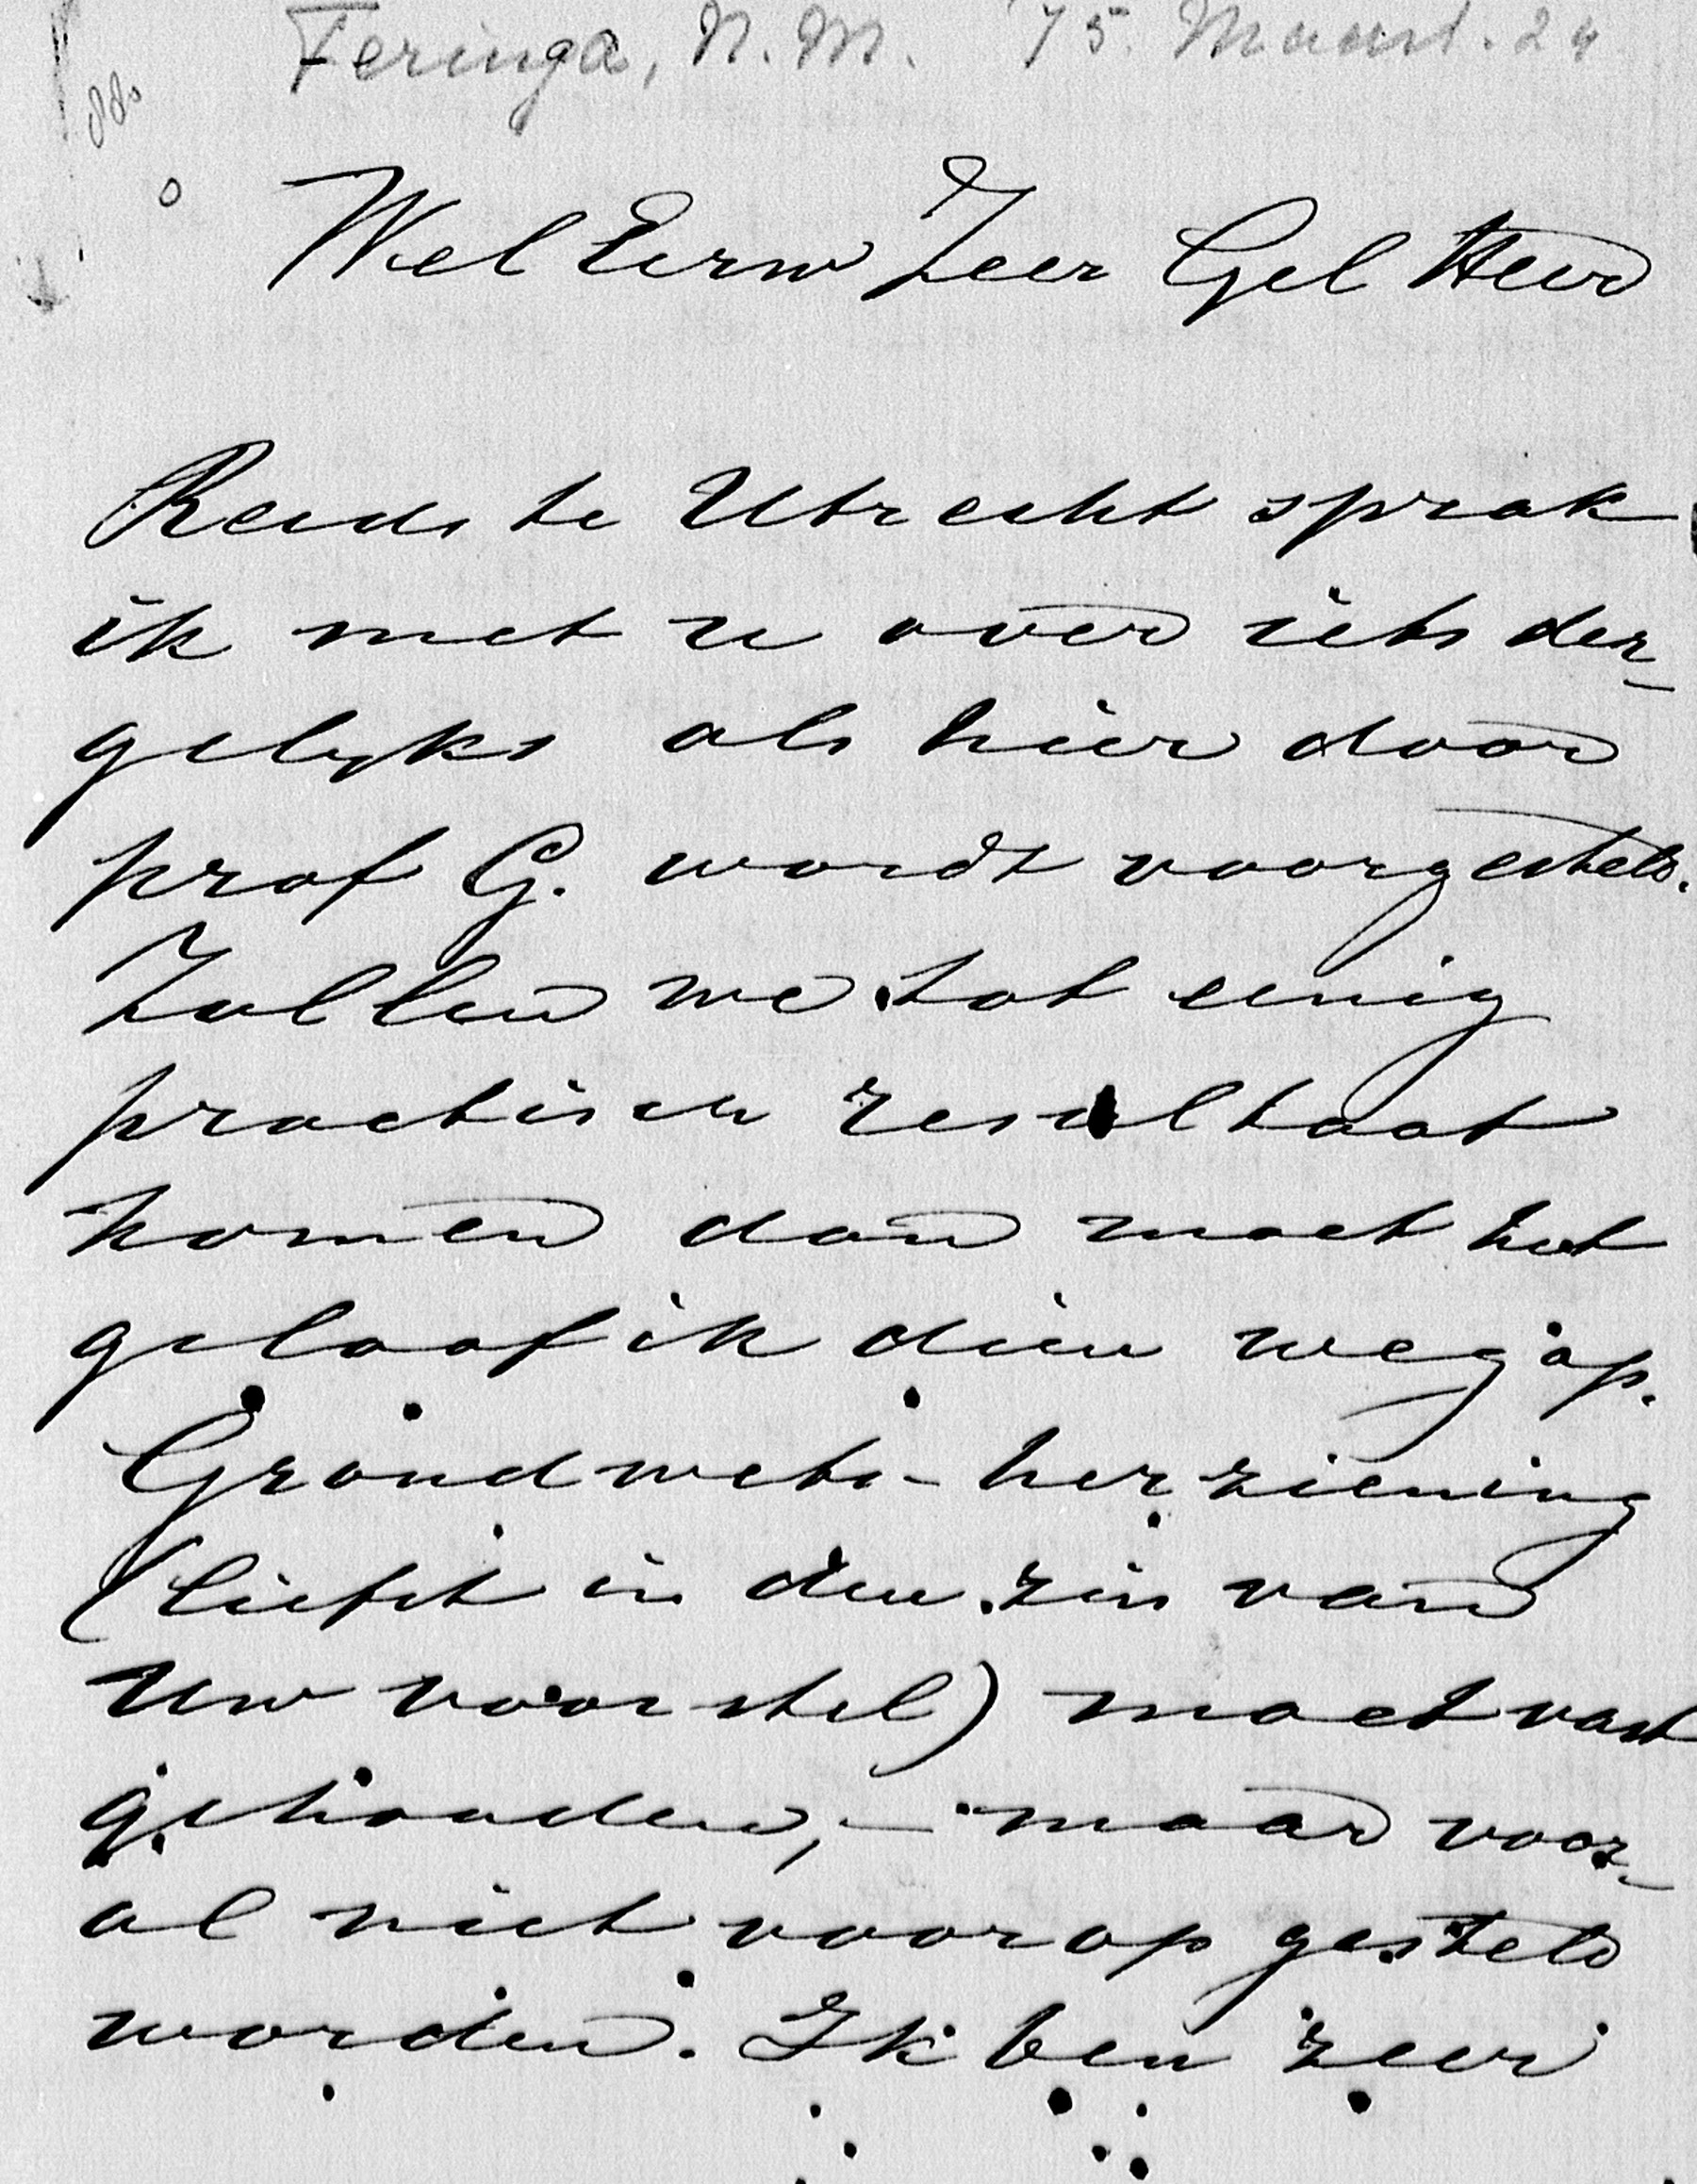 Feringa, N. M. '75. Maart. 24
Wel Eerw Zeer Gel Heer
Reeds te Utrecht sprak
ik met u over iets der-
gelyks als hier door
prof G. wordt voorgesteld.
Zullen we tot eenig
practisch resultaat
komen dan moet het
geloof ik dien weg op.
Grondwets-herziening
(liefst in den zin van
Uw voorstel) moet vast
gehouden, — maar voor-
al niet voorop gesteld
worden. Ik ben zeer